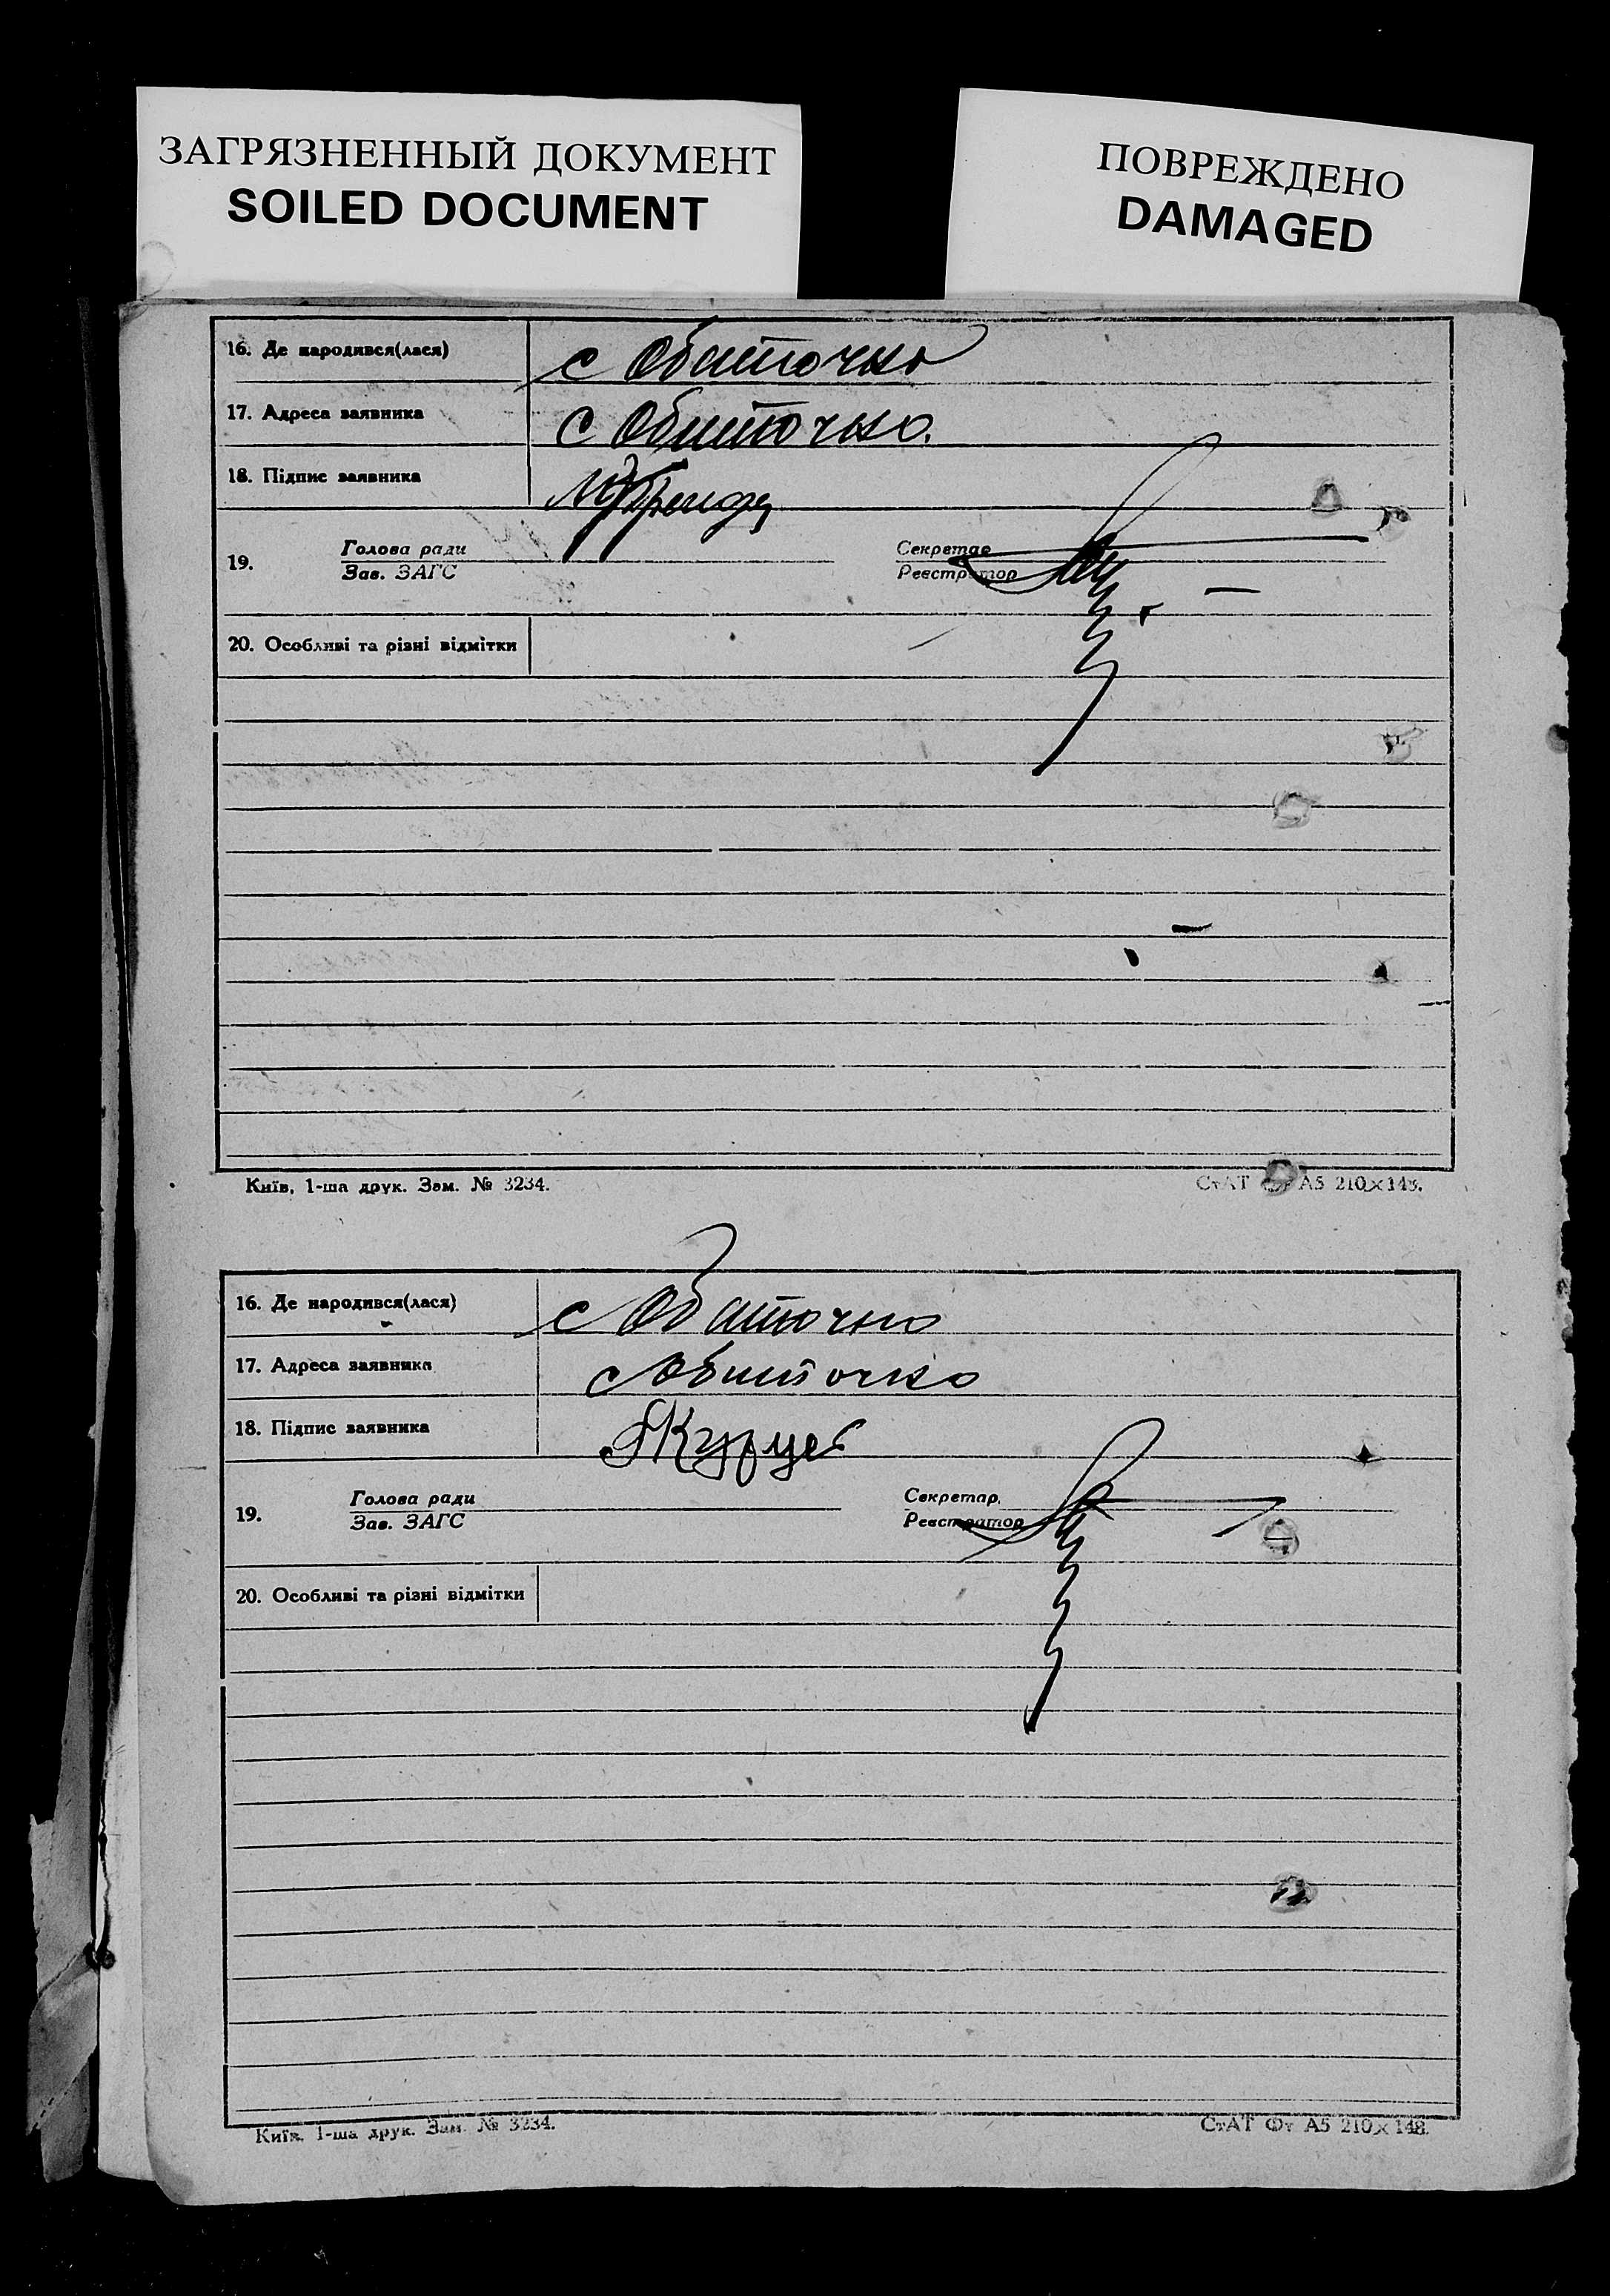 ЗАГРЯЗНЕННЫЙ ДОКУМЕНТ
SOILED DOCUMENT
ПОВРЕЖДЕНО
DAMAGED
16. Де народився(лася) с Обиточно
17. Адреса заявника с Обиточно.
18. Підпис заявника
19. Голова ради Секретар
Зав. ЗАГС Реєстратор
20. Особливі та різні відмітки
Київ, 1-ша друк. Зам. № 3234. СтАТ Фт А5 210×148.
16. Де народився(лася) с Обиточно
17. Адреса заявника с Обиточно
18. Підпис заявника
19. Голова ради Секретар
Зав. ЗАГС Реєстратор
20. Особливі та різні відмітки
Київ, 1-ша друк. Зам. № 3234. СтАТ Фт А5 210×148.